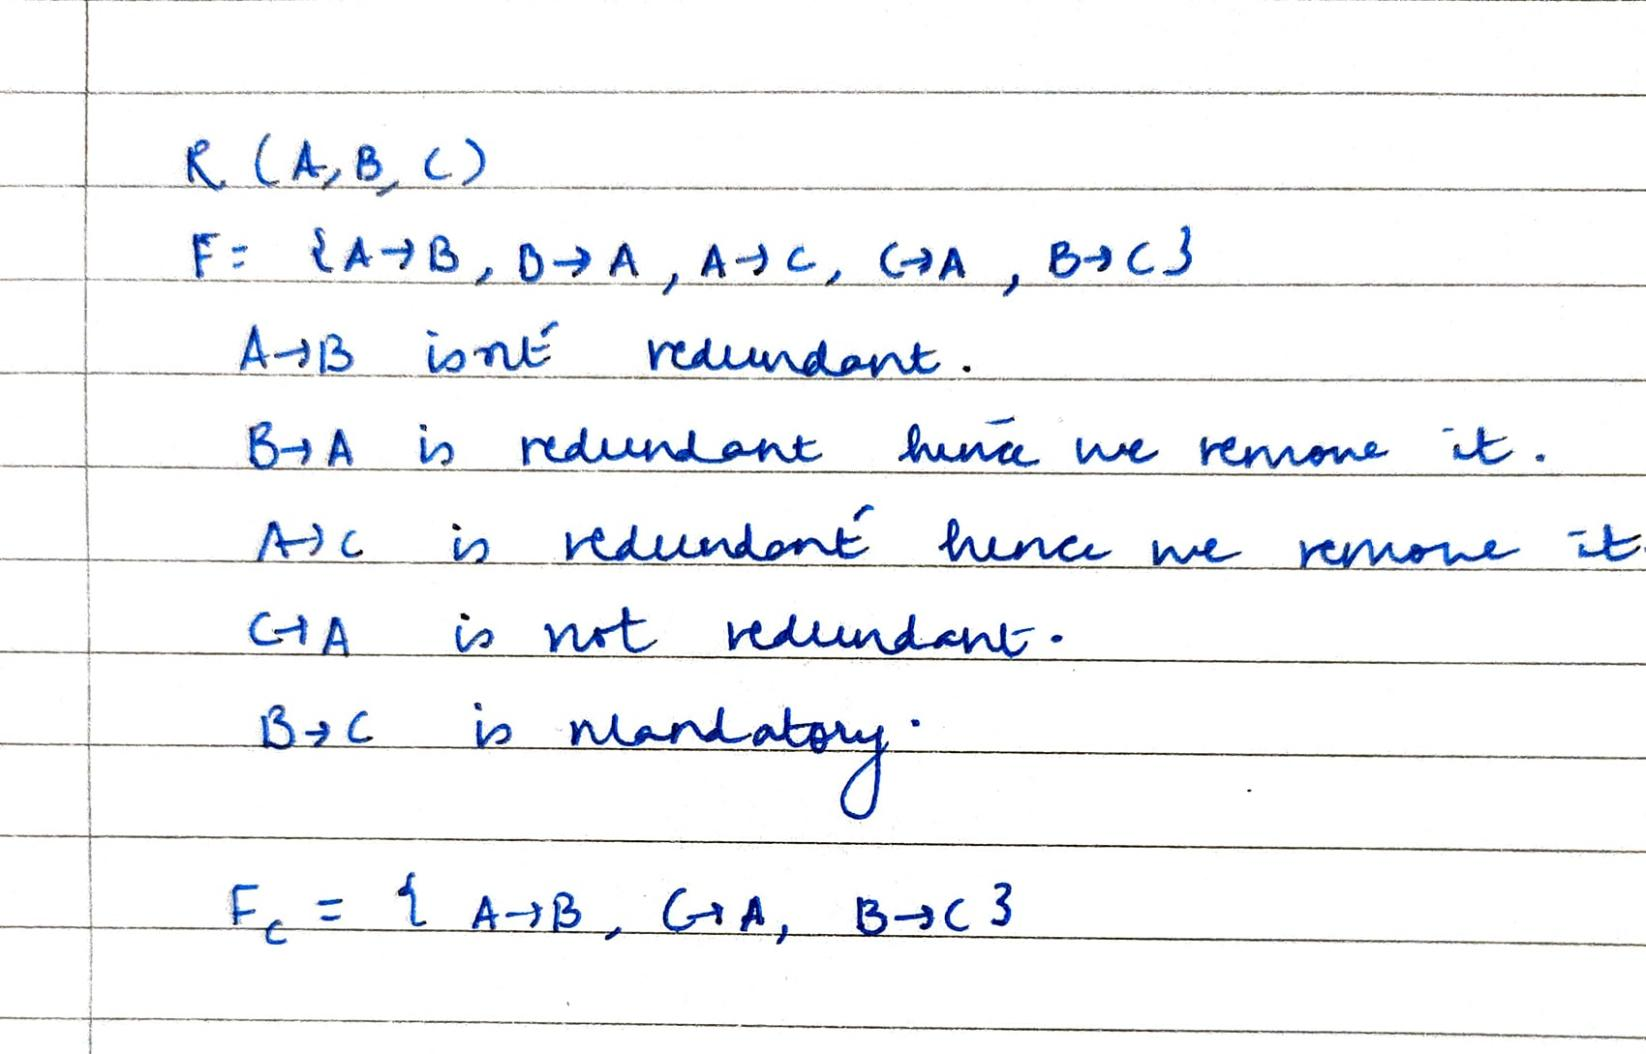 R (A, B, C)
F = {A→B, B→A, A→C, C→A, B→C}
A→B isn't redundant.
B→A is redundant hence we remove it.
A→C is redundant hence we remove it.
C→A is not redundant.
B→C is mandatory.
Fc = { A→B, C→A, B→C }